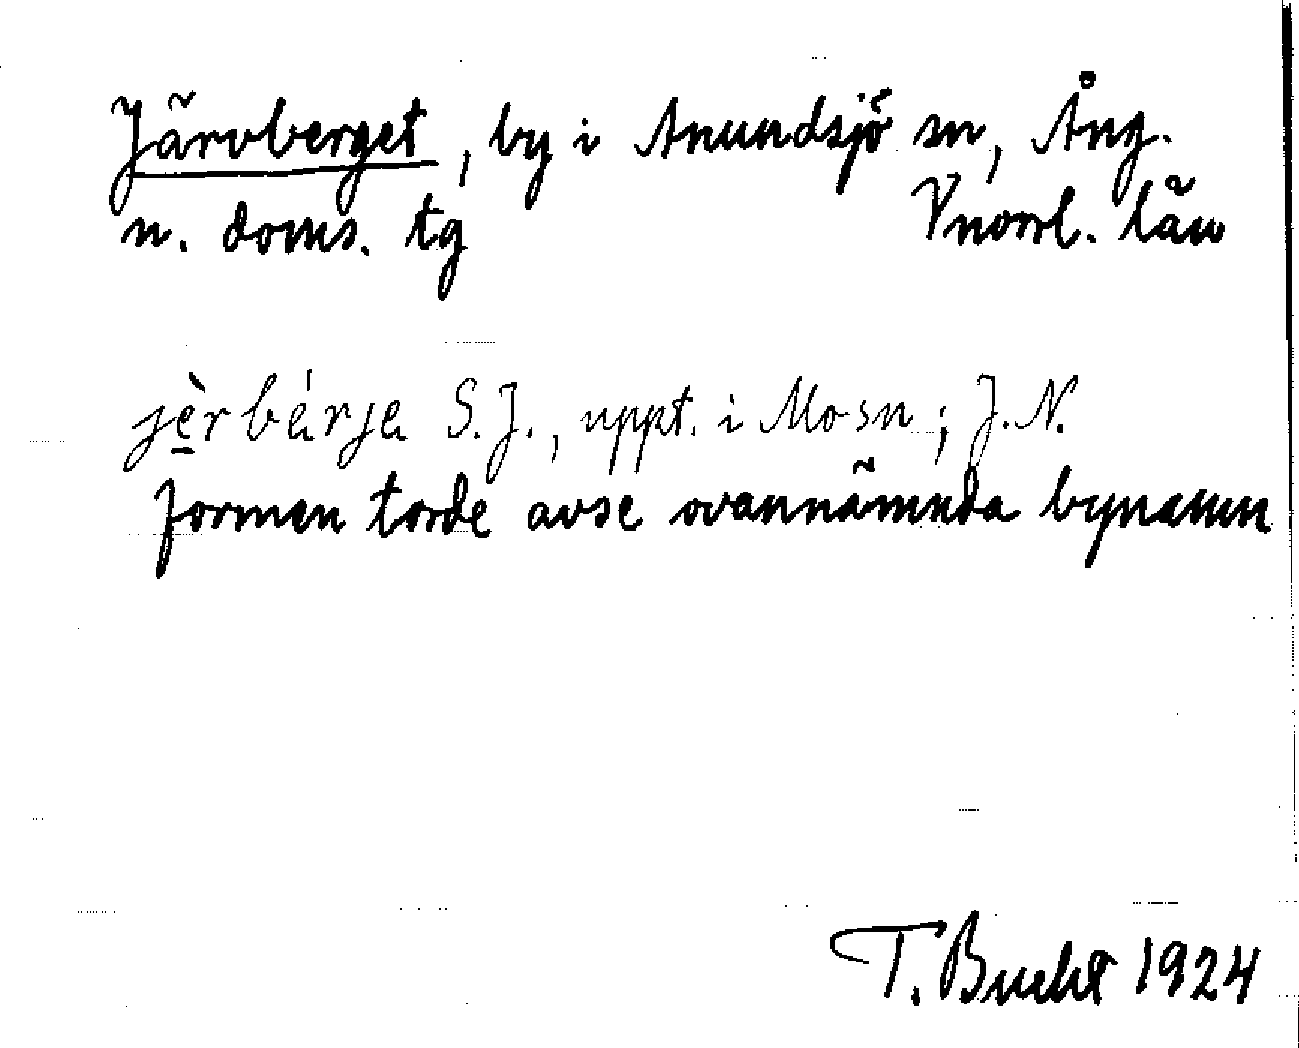 Järvberget, by i Anundsjö sn, Ång.
n. doms. tg Vnorrl. län
jè̱rbárja S.J., uppt. i Mo sn; J.N.
formen torde avse ovannämnda bynamn
T. Bucht 1924